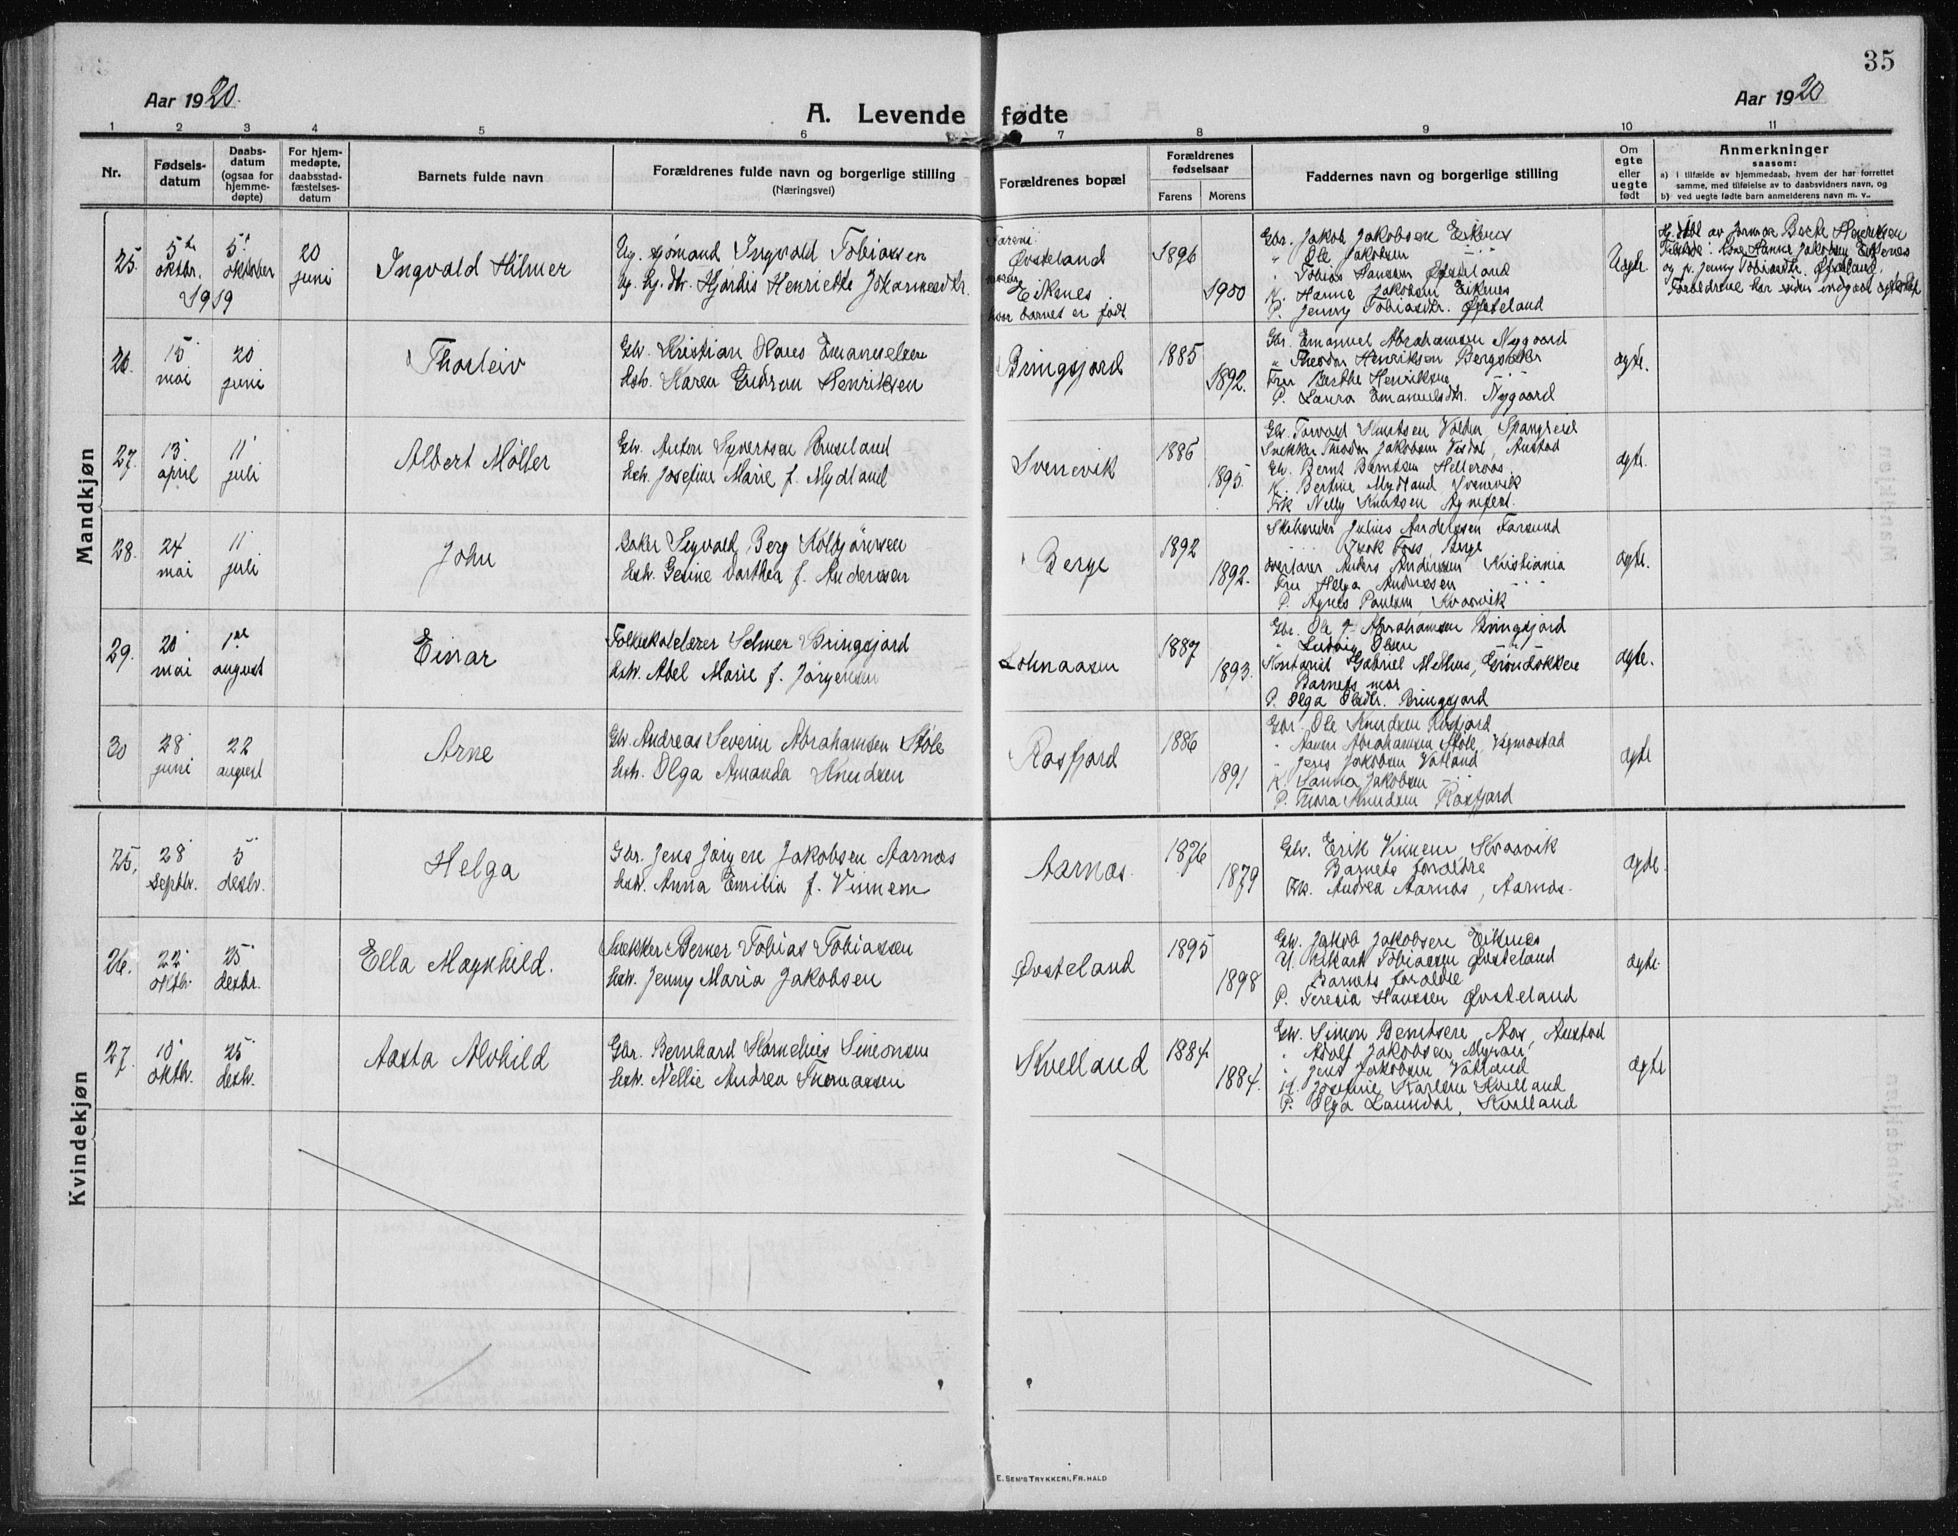 35
Aar 1920.
A. Levende fødte
Aar 1920
1 2 3 4 5 6 7 8 9 10 11
Nr.
Fødsels-
datum
Daabs-
datum
(ogsaa for
hjemme-
døpte)
For hjem-
medøpte,
daabsstad-
fæstelses-
datum
Barnets fulde navn
Forældrenes fulde navn og borgerlige stilling
(Næringsvei)
Forældrenes bopæl
Forældrenes
fødselsaar
Farens Morens
Faddernes navn og borgerlige stilling
Om
egte
eller
uegte
født
Anmerkninger
saasom:
a) I tilfælde av hjemmedaab, hvem der har forrettet
samme, med tilføielse av to daabsvidners navn, og
b) ved uegte fødte barn anmelderens navn m. v..
Mandkjøn
25.
5te
oktbr.
1919
5'
oktober
20
juni
Ingvald Hilmer
Ug. sømand Ingvald Tobiassen
Ug. Gj. dtr. Hjørdis Henriette Johannesdtr.
Farens:
Øvsteland
Eikenes
hvor barnet er født
1896
1900
Gbr. Jakob Jakobsen Eikenes
" Ole Jakobsen
" Tobias Hansen Øvsteland
K. Hanne Jakobsen Eikenes
P. Jenny Tobiasdtr. Øvsteland
Uegte
Hj. døbt av jormor Berte Henriksen
Hanne Jakobsen Eikenes
og p. Jenny Tobiasdtr. Øvsteland.
Foreldrene har siden indgaat egteskap
26.
15
mai
20
juni
Thorleiv
Gbr. Kristian Hans Emanuelsen
Hst. Karen Gudrun Henriksen
Bringsjord
1885
1892.
Gbr. Emanuel Abrahamsen Nygaard
" Theodor Henriksen Bergsaker
Fru Berthe Henriksen
P. Laura Emanuelsdtr. Nygaard
ægte.
27.
13
april
11'
juli
Albert Møller
Gbr. Anton Syvertsen Bruseland
Hst. Josefine Marie f. Mydland
Svenevik
1885
1895.
Gbr. Torvald Knutsen Valden Spangreid
Snekker Theodor Jakobsen Vigdal, Austad
Gbr. Bernt Berntsen Hellevaas
K. Bertine Mydland Svenevik
Frk Nelly Knutsen
ægte.
28.
24
mai
11'
juli
John
Baker Sigvald Berg Kolbjørnsen
Hst. Gesine Dorthea f. Andersen
Berge
1892
1892.
Skibsreder Julius Andersen Farsund
Isak Foss, Berge
Anders Andersen Kristiania
Fru Helga Andersen
P. Agnes Paulsen Kvavik
ægte.
29.
20
mai
1ste
august
Einar
Folkeskolelærer Selmer Bringsjord
Hst. Abel Marie f. Jørgensen
Lohnaasen
1887
1893.
Gbr. Ole J. Abrahamsen Bringsjord
" Ludvig Olsen
Gabriel Melhus, Grøndokken
Barnets mor
P. Olga Olsdtr. Bringsjord
ægte.
30
28
juni
22
august
Arne
Gbr. Andreas Severin Abrahamsen Støle
Hst. Olga Amanda Knudsen
Rosfjord
1886
1891
Gbr. Ole Knudsen Rosfjord
" Abrahamsen Støle, Vigmostad
" Jens Jakobsen Vatland
K. Sanna Jakobsen
P. Thora Knudsen Rosfjord
ægte
Kvindekjøn
25.
28
septbr.
5
desbr.
Helga
Gbr. Jens Jørgen Jakobsen Aarnæs
Hst. Anna Emilia f. Vinnem
Aarnæs.
1876
1879
Gbr. Erik Vinnem Kvaavik
Barnets foreldre
Frk. Andrea Aarnæs, Aarnæs.
ægte.
26.
22
oktbr.
25
desbr.
Ella Magnhild.
Snekker Berner Tobias Tobiassen
Hst. Jenny Maria Jakobsen
Øvsteland
1895
1898
Gbr. Jakob Jakobsen Eikenes
U. Rikard Tobiassen Øvsteland
Barnets foreldre
P. Teresia Hanssen Øvsteland
ægte.
27.
10
oktbr.
25
desbr.
Aasta Alvhild
Gbr. Bernhard Kornelius Simonsen
Hst. Nellie Andrea Thomassen
Kvelland
1884
1884.
Gbr. Simon Berntsen Aas, Austad
" Adolf Jakobsen Myran
" Jens Jakobsen Vatland
K. Josefine Karlsen Kvelland
P. Olga Laundal, Kvelland
ægte
E. SEM'S TRYKKERI, FR.HALD